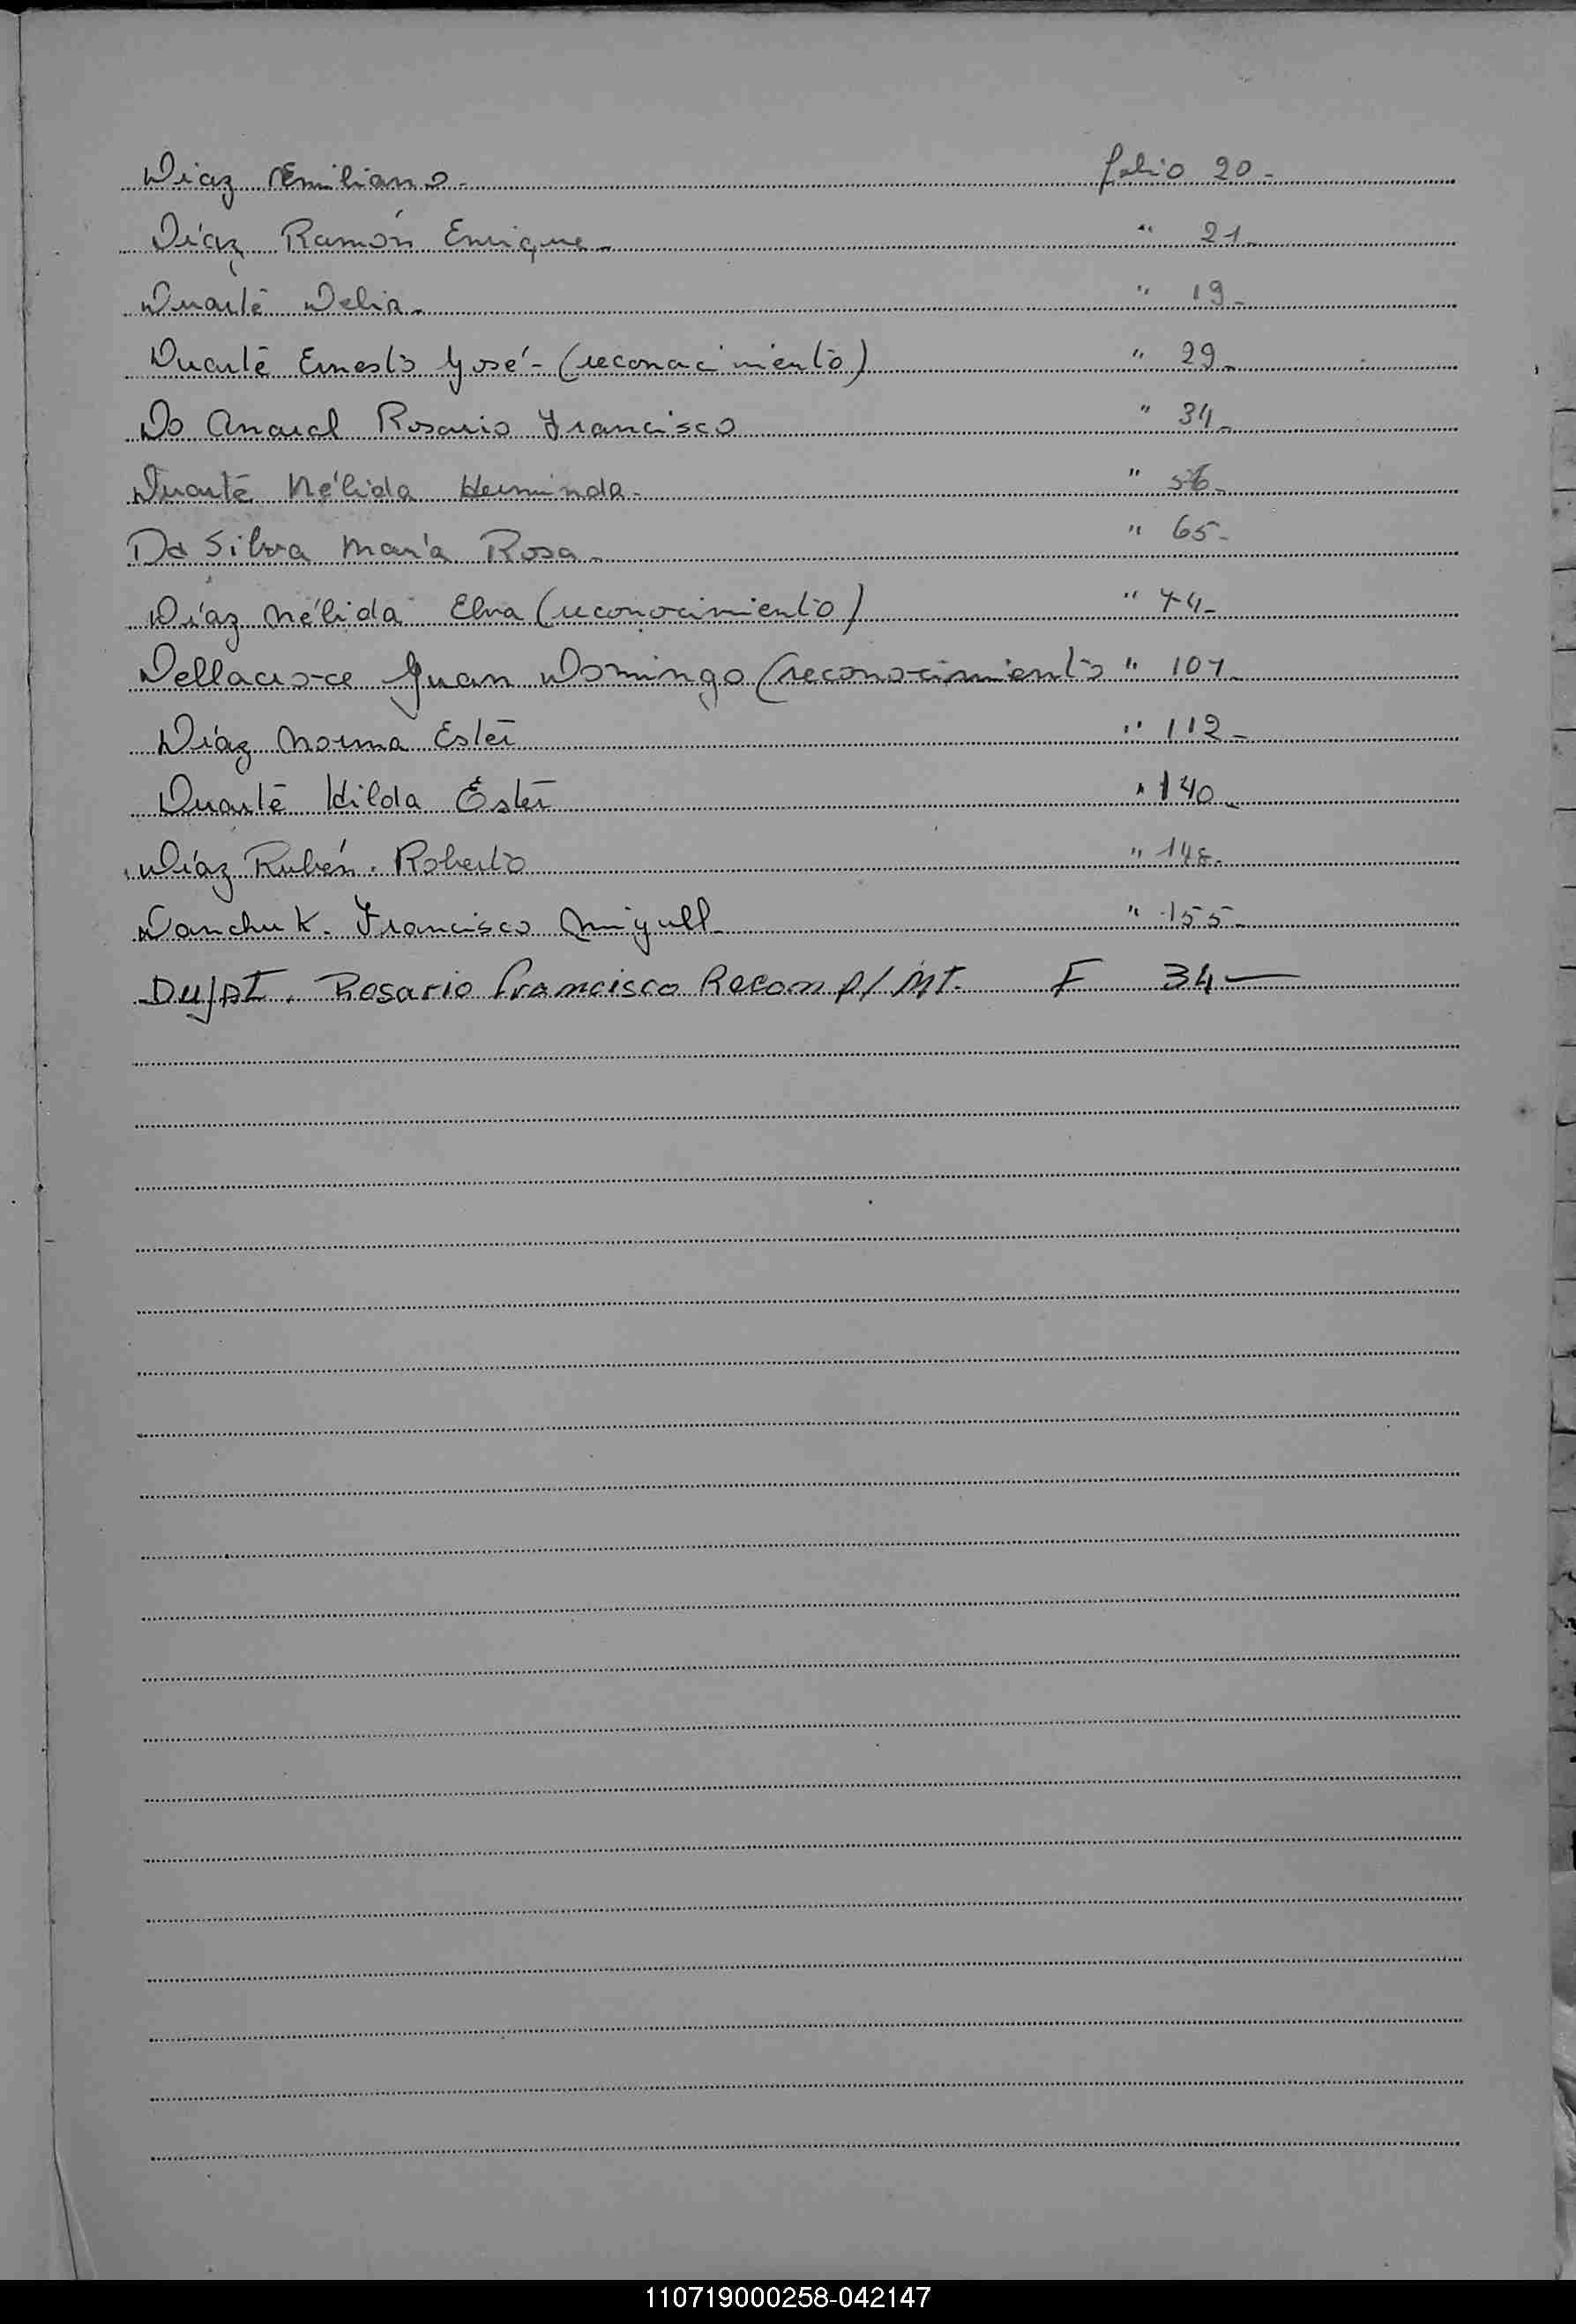 Díaz Emiliano - folio 20 -
Díaz Ramón Enrique - " 21 -
Duarte Delia - " 19 -
Duarte Ernesto José - (reconocimiento) " 29 -
Do Amaral Rosario Francisco " 34 -
Duarte Nélida Herminda - "
Da Silva María Rosa - " 65 -
Díaz Nélida Elva (reconocimiento) " 74 -
Dellacroce Juan Domingo (reconocimiento " 107 -
Díaz Norma Ester " 112 -
Duarte Hilda Ester " 140 -
Díaz Rubén Roberto " 148 -
Danchuk Francisco Miguel - " 155 -
Rosario Francisco Recon p/ MT. F 34 —
110719000258-042147